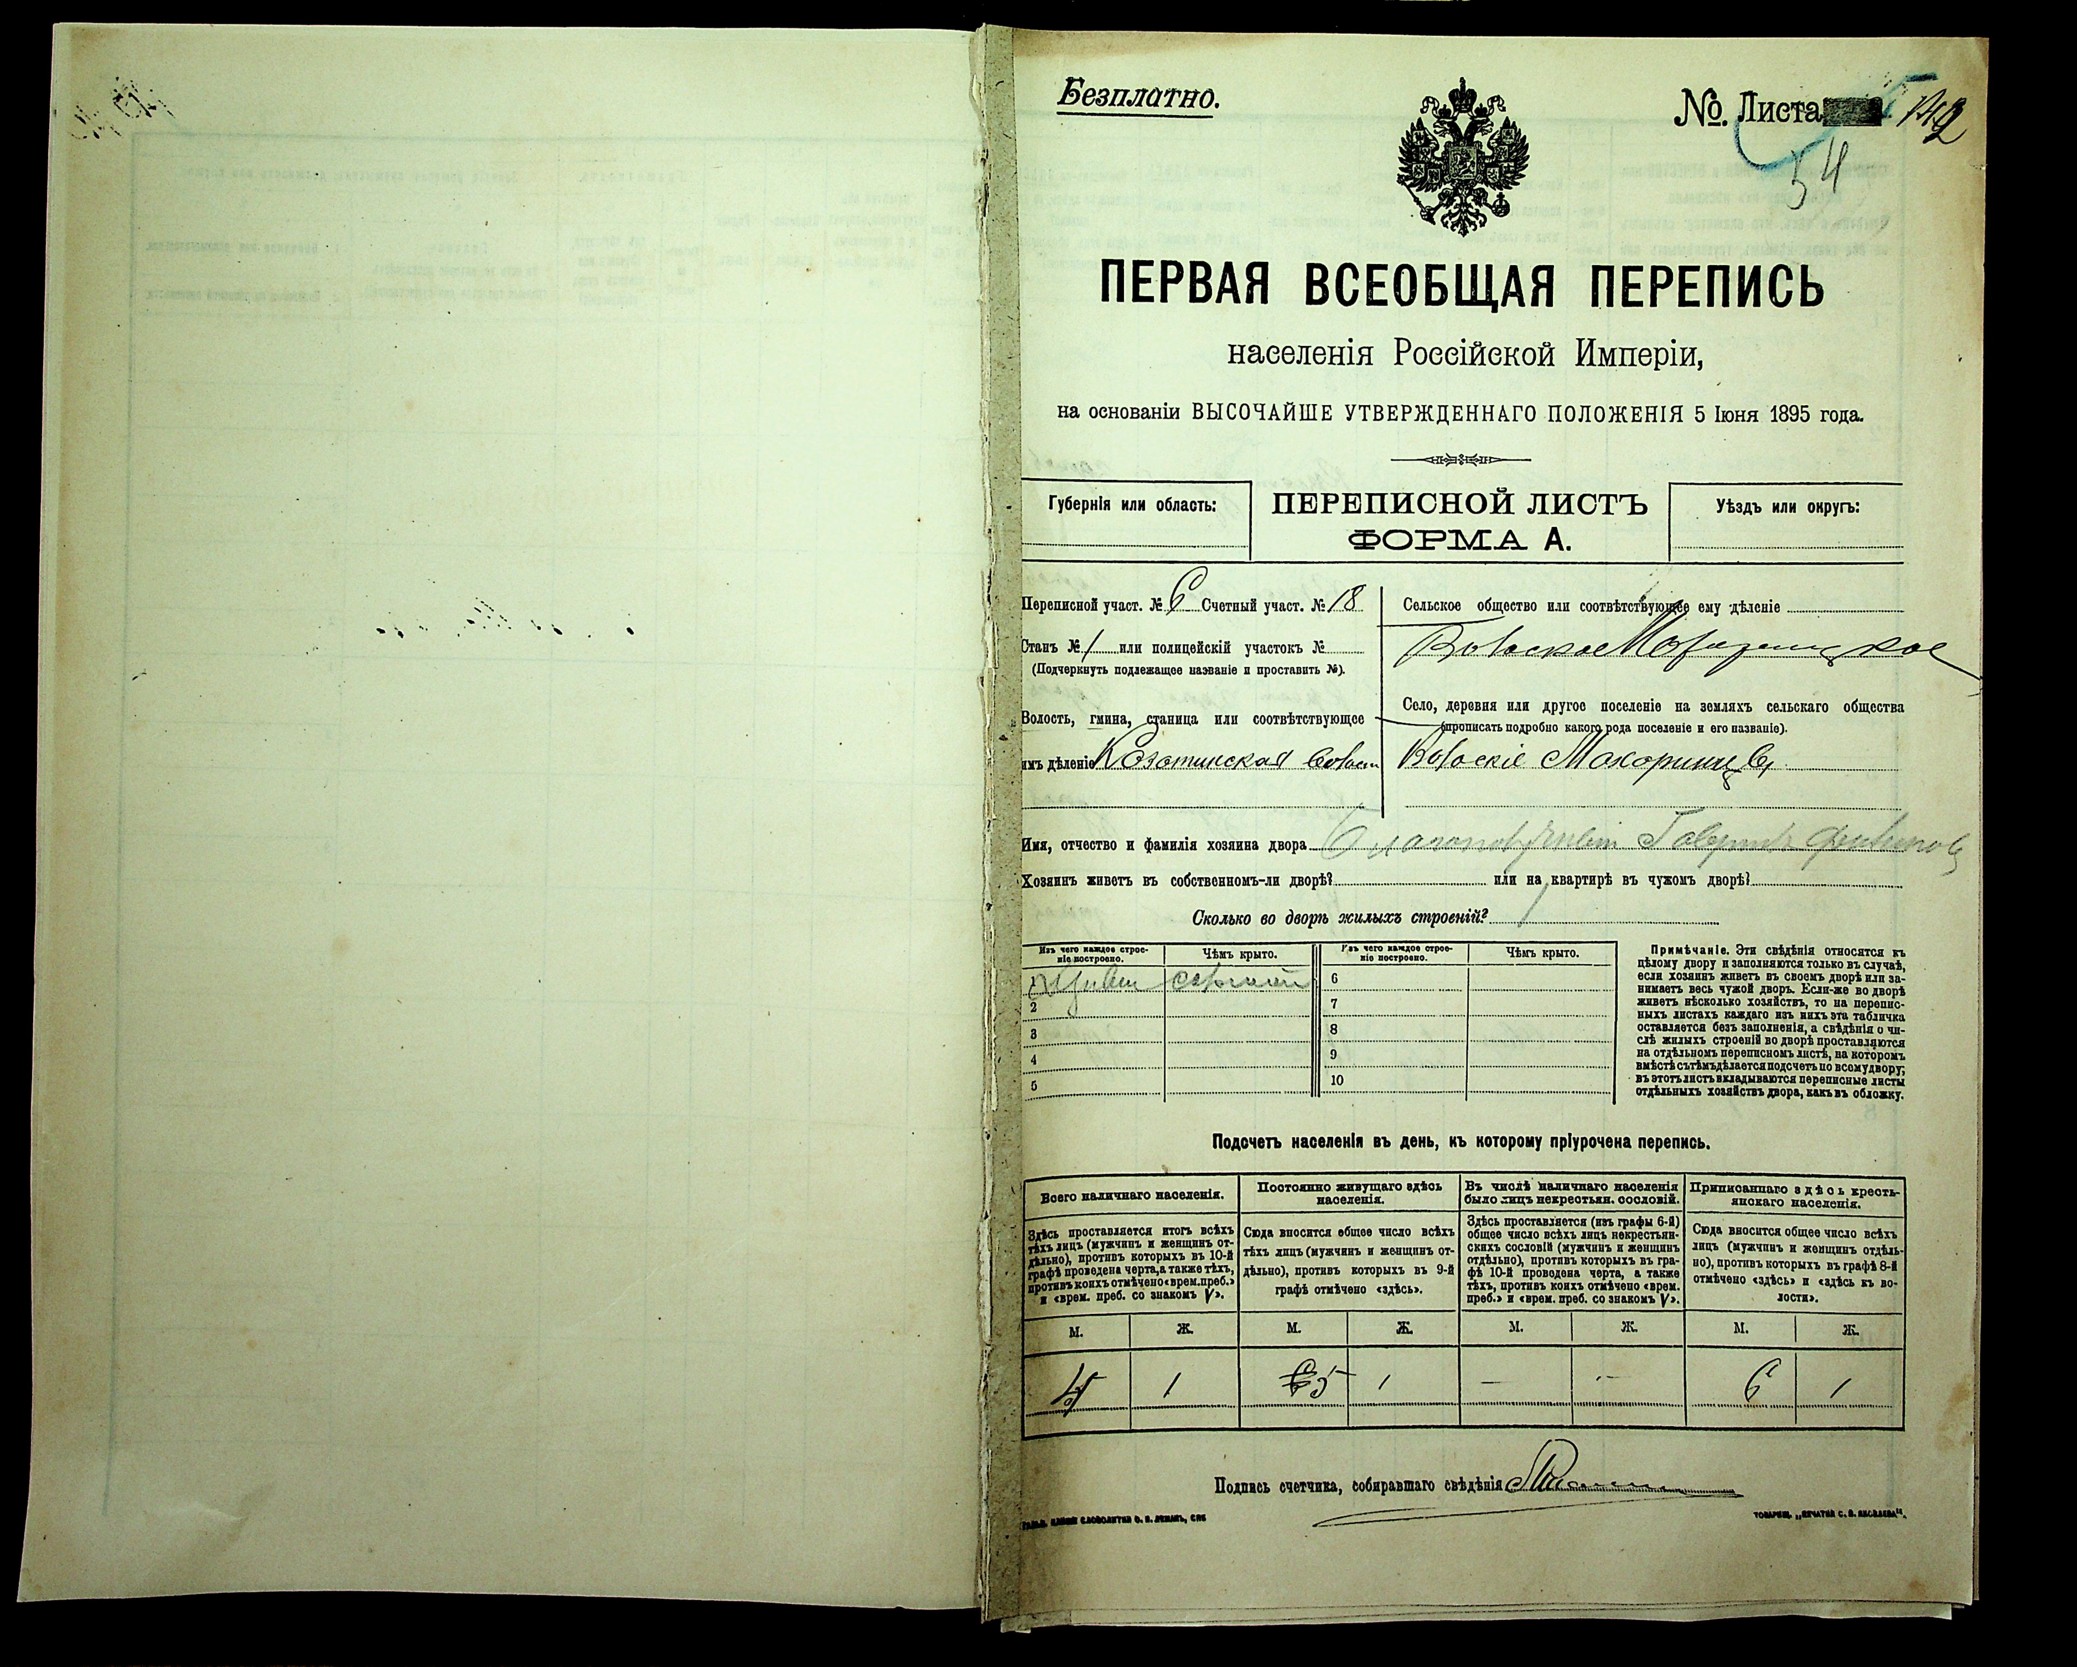 Безплатно.
№. Листа
54
ПЕРВАЯ ВСЕОБЩАЯ ПЕРЕПИСЬ
населенія Россійской Имперіи,
на основаніи ВЫСОЧАЙШЕ УТВЕРЖДЕННАГО ПОЛОЖЕНІЯ 5 Іюня 1895 года.
Губернія или область:
ПЕРЕПИСНОЙ ЛИСТЪ
ФОРМА А.
Уѣздъ или округъ:
Переписной участ. № 6 Счетный участ. № 18
Станъ № 1 или полицейскій участокъ №
(Подчеркнуть подлежащее названіе и проставить №).
Волость, гмина, станица или соотвѣтствующее
имъ дѣленіе Козатинская
Сельское общество или соотвѣтствующее ему дѣленіе
Село, деревня или другое поселеніе на земляхъ сельскаго общества
(прописать подробно какого рода поселеніе и его названіе).
Имя, отчество и фамилія хозяина двора
Хозяинъ живетъ въ собственномъ-ли дворѣ? или на квартирѣ въ чужомъ дворѣ?
Сколько во дворѣ жилыхъ строеній? 1
Изъ чего каждое строе-
ніе построено.
Чѣмъ крыто.
Изъ чего каждое строе-
ніе построено.
Чѣмъ крыто.
1
2
3
4
5
6
7
8
9
10
Примѣчаніе. Эти свѣдѣнія относятся къ
цѣлому двору и заполняются только въ случаѣ,
если хозяинъ живетъ въ своемъ дворѣ или за-
нимаетъ весь чужой дворъ. Если-же во дворѣ
живетъ нѣсколько хозяйствъ, то на перепис-
ныхъ листахъ каждаго изъ нихъ эта табличка
оставляется безъ заполненія, а свѣдѣнія о чи-
слѣ жилыхъ строеній во дворѣ проставляются
на отдѣльномъ переписномъ листѣ, на которомъ
вмѣстѣ съ тѣмъ дѣлается подсчетъ по всему двору;
въ этотъ листъ вкладываются переписные листы
отдѣльныхъ хозяйствъ двора, какъ въ обложку.
Подсчетъ населенія въ день, къ которому пріурочена перепись.
Всего наличнаго населенія.
Здѣсь проставляется итогъ всѣхъ
тѣхъ лицъ (мужчинъ и женщинъ от-
дѣльно), противъ которыхъ въ 10-й
графѣ проведена черта, а также тѣхъ,
противъ коихъ отмѣчено «врем. преб.»
и «врем. преб. со знакомъ V».
Постоянно живущаго здѣсь
населенія.
Сюда вносится общее число всѣхъ
тѣхъ лицъ (мужчинъ и женщинъ от-
дѣльно), противъ которыхъ въ 9-й
графѣ отмѣчено «здѣсь».
Въ числѣ наличнаго населенія
было лицъ некрестьян. сословій.
Здѣсь проставляется (изъ графы 6-й)
общее число всѣхъ лицъ некрестьян-
скихъ сословій (мужчинъ и женщинъ
отдѣльно), противъ которыхъ въ гра-
фѣ 10-й проведена черта, а также
тѣхъ, противъ коихъ отмѣчено «врем.
преб.» и «врем. преб. со знакомъ V».
Приписаннаго здѣсь кресть-
янскаго населенія.
Сюда вносится общее число всѣхъ
лицъ (мужчинъ и женщинъ отдѣль-
но), противъ которыхъ въ графѣ 8-й
отмѣчено «здѣсь» и «здѣсь къ во-
лости».
М. Ж. М. Ж. М. Ж. М. Ж.
1 5 1 — — 6 1
Подпись счетчика, собиравшаго свѣдѣнія
ТОВАРИЩ. „ПЕЧАТНЯ С. П. ЯКОВЛЕВА“.